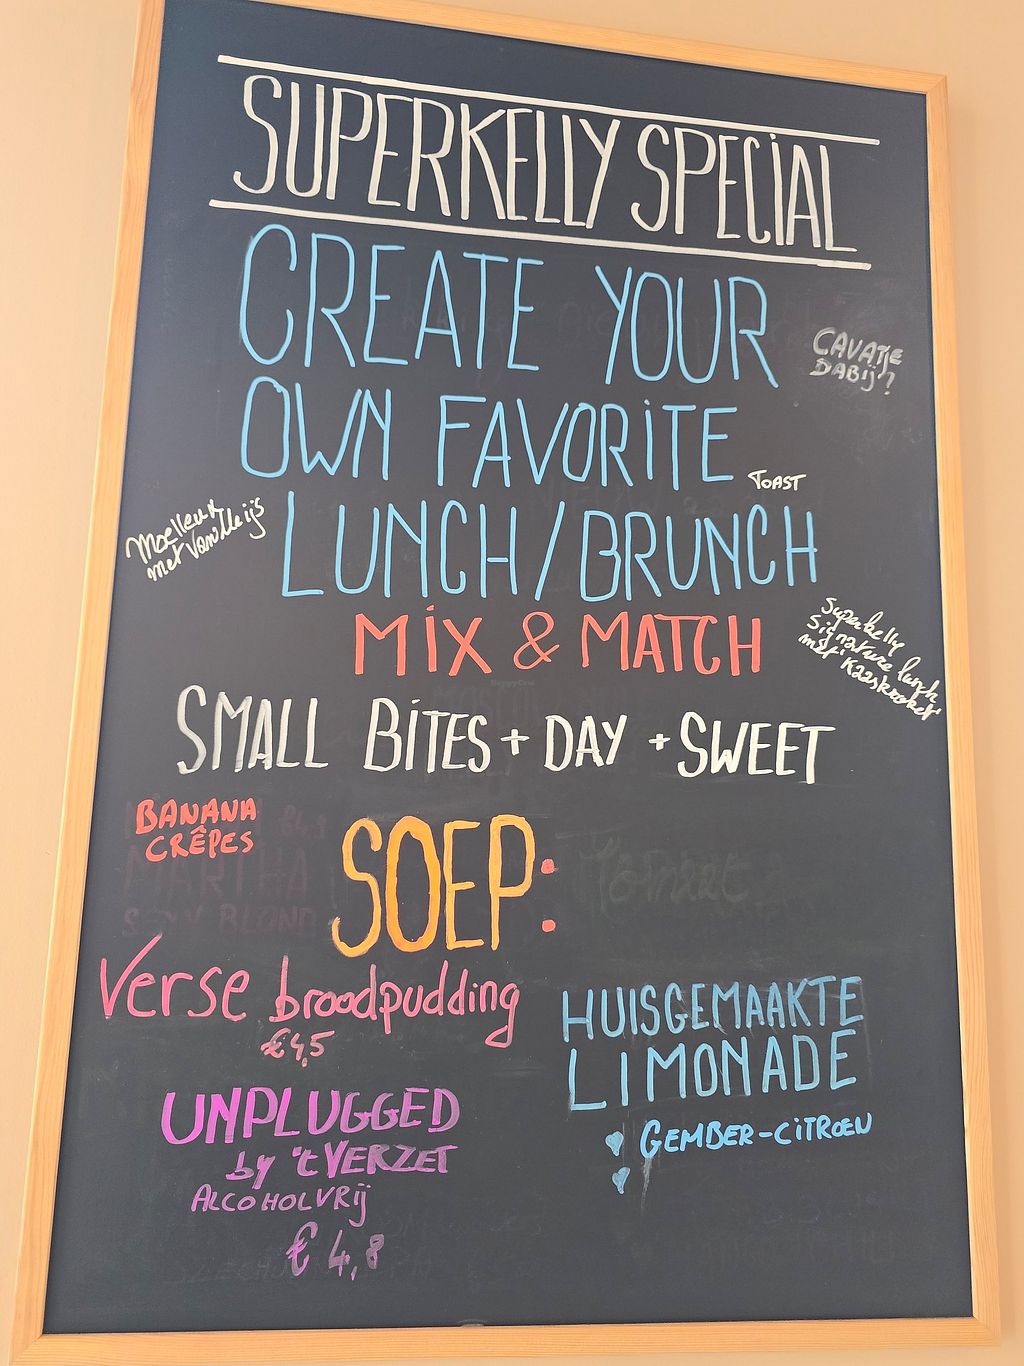 SUPERKELLY SPECiAL
CREATE YOUR
CAVATJE
DABIJ?
OWN FAVORiTE
TOAST
LUNCH/BRUNCH
Moelleux
met Vanilleijs
MiX & MATCH
Superkelly
Signature lunch
met kaaskroket
SMALL BiTES + DAY + SWEET
BANANA
CRÊPES
SOEP:
Tomaat
Verse broodpudding
€4,5
HUISGEMAAKTE
LIMONADE
GEMBER-CiTROEN
UNPLUGGED
by 't VERZET
ALCOHOLVRij
€ 4,8